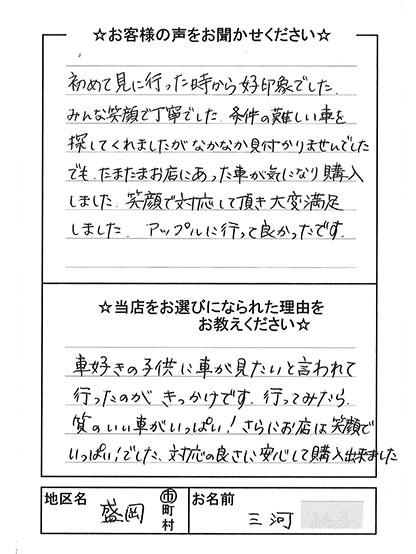 ☆お客様の声をお聞かせください☆
初めて見に行った時から好印象でした。
みんな笑顔で丁寧でした。条件の難しい車を
探してくれましたがなかなか見付かりませんでした
でも、たまたまお店にあった車が気になり購入
しました。笑顔で対応して頂き大変満足
しました。 アップルに行って良かったです。
☆当店をお選びになられた理由を
お教えください☆
車好きの子供に車が見たいと言われて
行ったのが きっかけです。行ってみたら、
質のいい車がいっぱい!さらにお店は笑顔で
いっぱい!でした、対応の良さに安心して購入出来ました
地区名 盛岡 市町村 お名前 三河